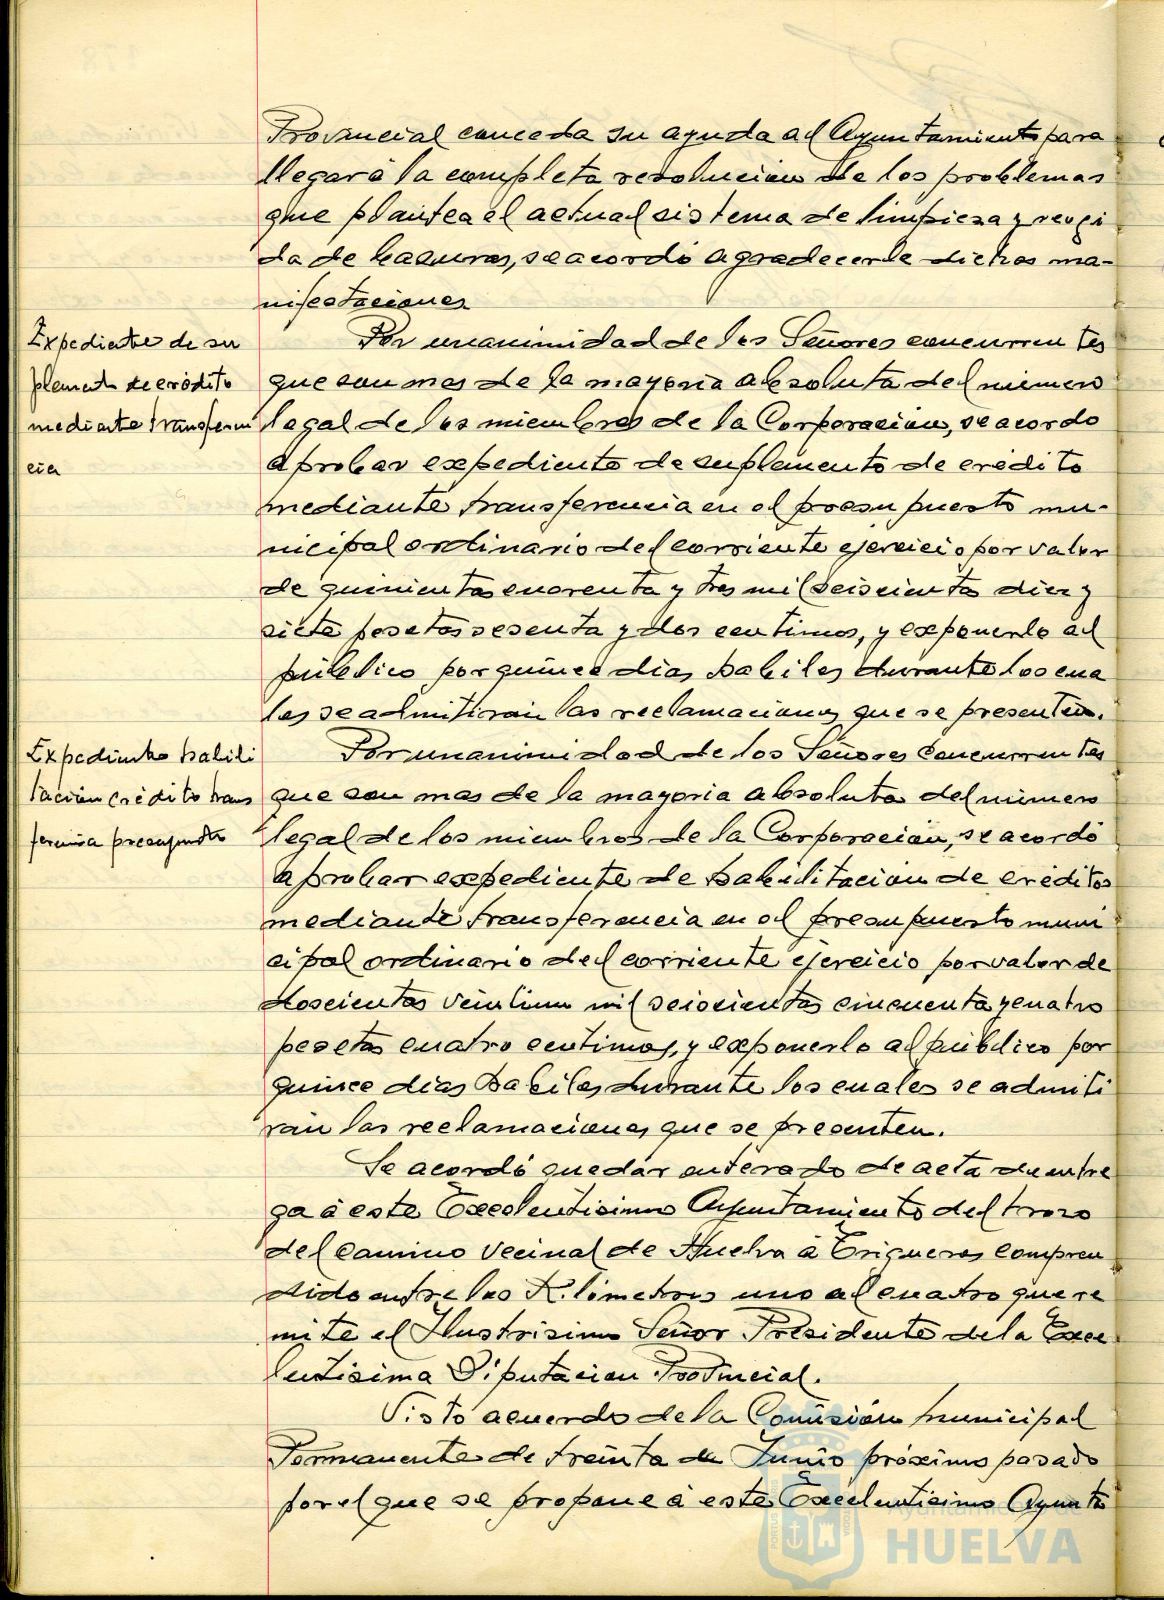 Provincial conceda su ayuda al Ayuntamiento para
llegar á la completa resolución de los problemas
que plantea el actual sistema de limpieza y recogi
da de basuras, se acordó agradecerle dichas ma-
nifestaciones
Expediente de su
plemento de crédito
mediante transferen
cia
Por unanimidad de los Señores concurrentes
que son mas de la mayoria absoluta del número
legal de los miembros de la Corporación, se acordo
aprobar expediente de suplemento de crédito
mediante transferencia en el presupuesto mu-
nicipal ordinario del corriente ejercicio por valor
de quinientas cuarenta y tres mil seiscientas diez y
siete pesetas sesenta y dos centimos, y exponerlo al
público por quince dias habiles durante los cua
les se admitirán las reclamaciones que se presenten.
Expediente habili
tación crédito trans
ferencia presupuesto
Por unanimidad de los Señores concurrentes
que son mas de la mayoria absoluta del número
legal de los miembros de la Corporación, se acordó
aprobar expediente de habilitación de créditos
mediante transferencia en el presupuesto muni
cipal ordinario del corriente ejercicio por valor de
doscientas veintiun mil seiscientas cincuenta y cuatro
pesetas cuatro centimos, y exponerlo al público por
quince dias habiles durante los cuales se admiti
rán las reclamaciones que se presenten.
Se acordó quedar enterado de acta de entre
ga á este Excelentisimo Ayuntamiento del trozo
del camino vecinal de Huelva á Trigueros compren
dido entre los Kilómetros uno al cuatro que re
mite el Ilustrisimo Señor Presidente de la Exce
lentisima Diputacion Provincial.
Visto acuerdo de la Comisión Municipal
Permanente de treinta de Junio próximo pasado
por el que se propone á este Excelentisimo Ayunta
Ayuntamiento de
HUELVA